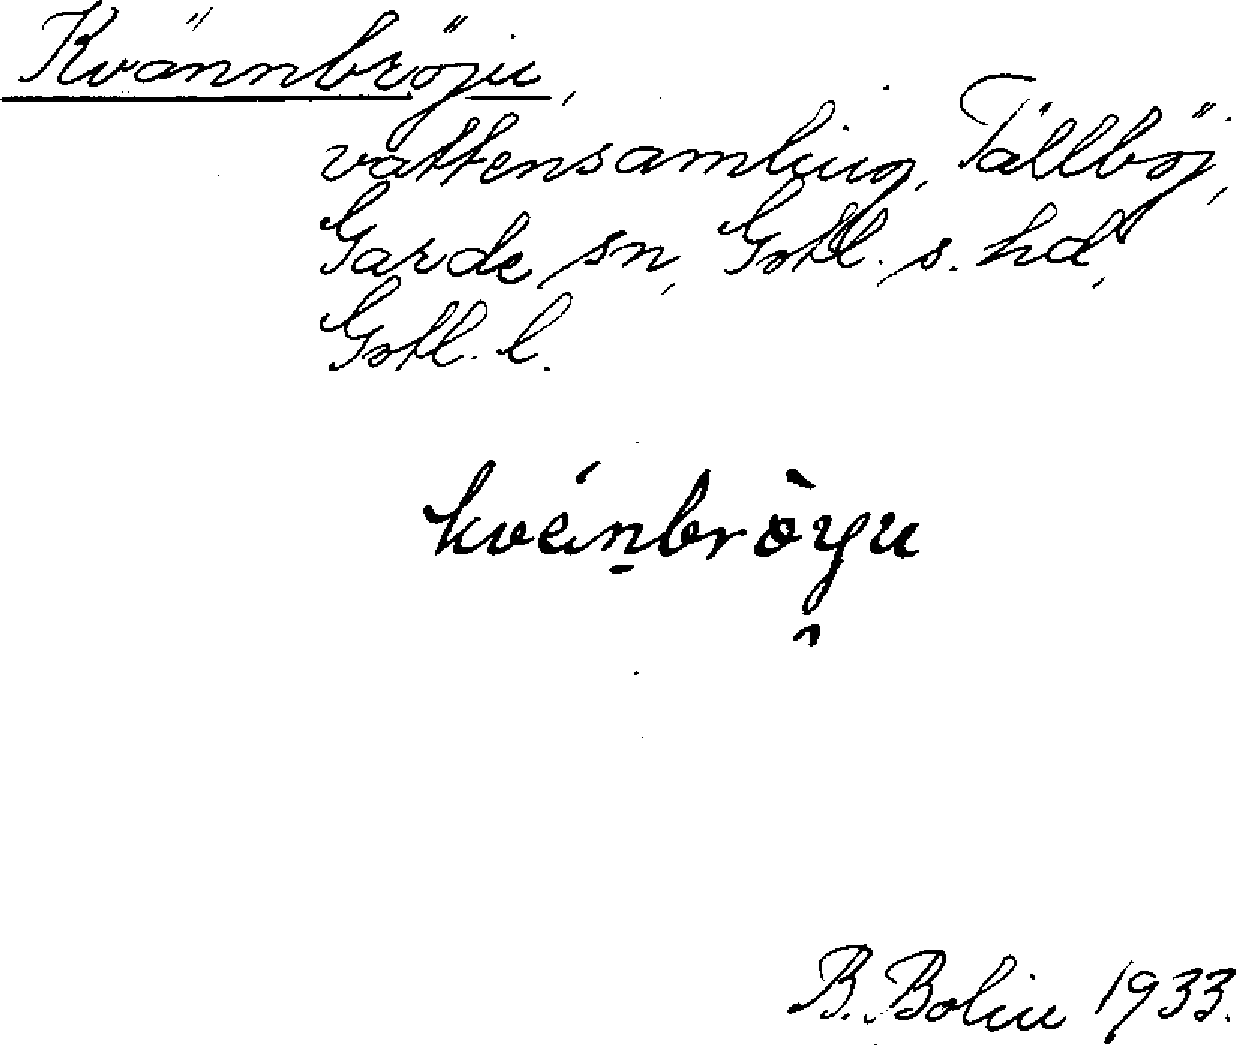 Kvännbröju,
vattensamling, Tällböj,
Garde sn, Gotl. s. hd,
Gotl. l.
kvénbròyu
B. Bolin 1933.